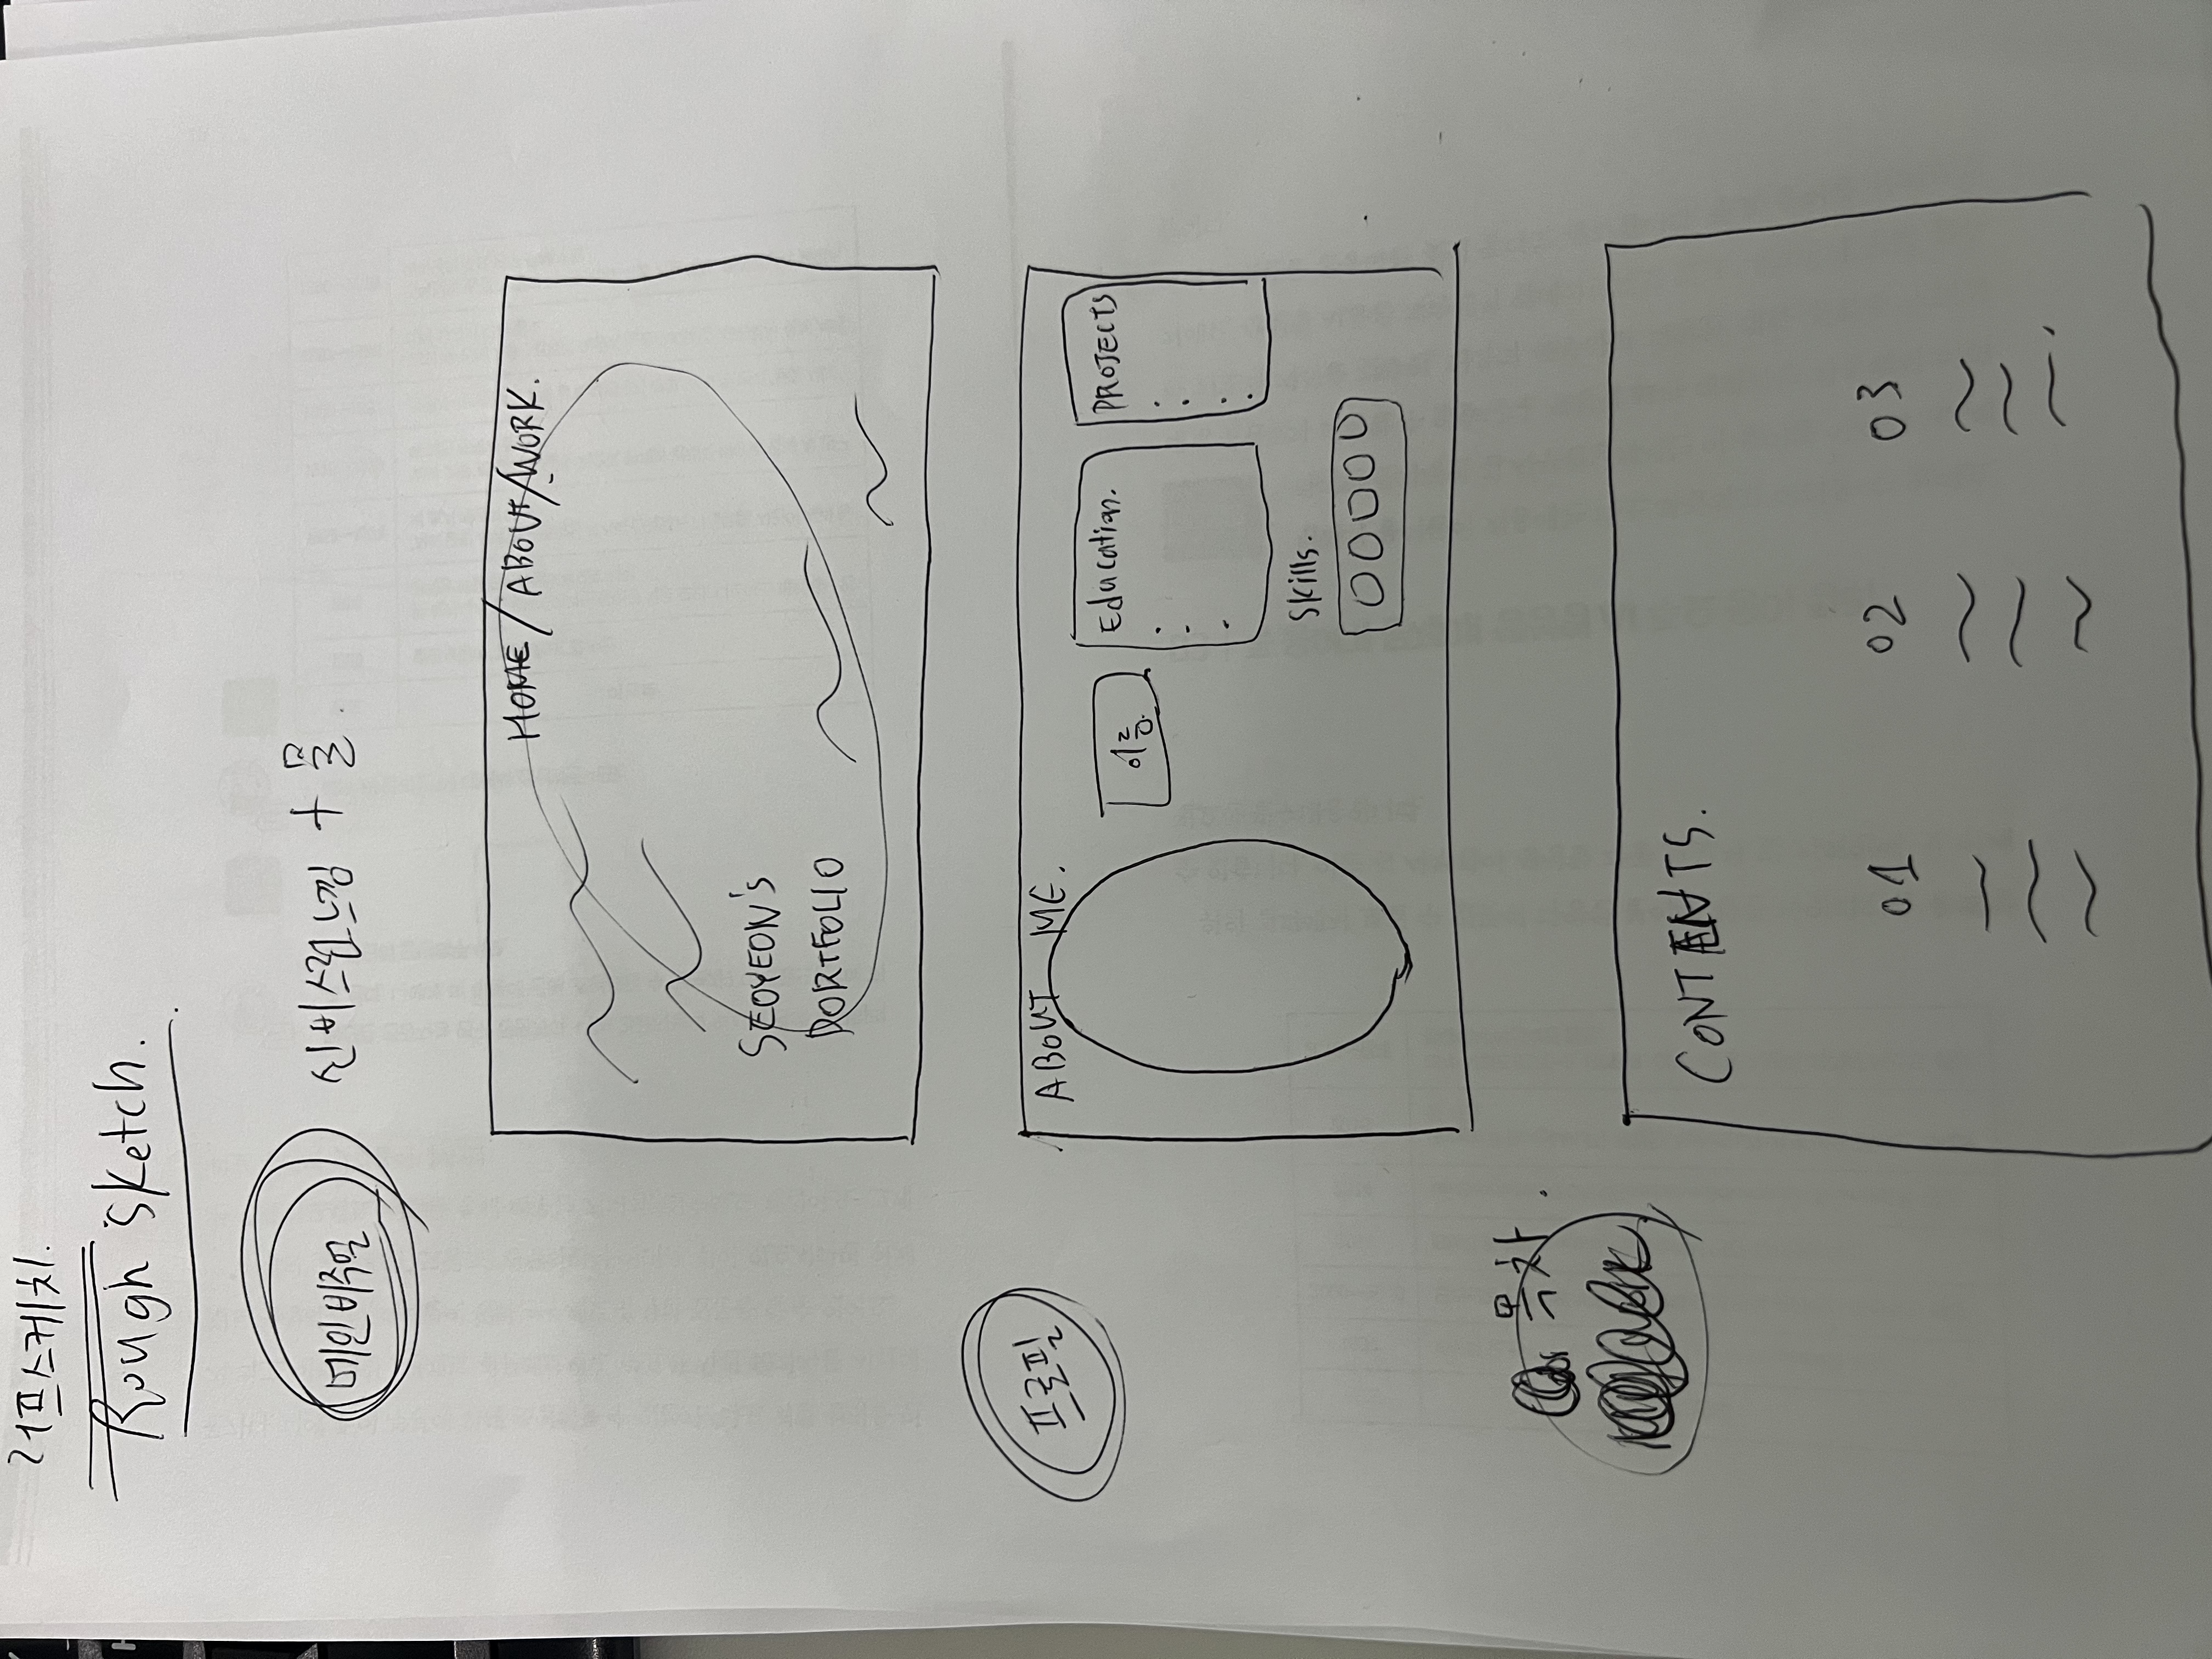 러프스케치.
Rough sketch.
메인비주얼
신비스런느낌 + 물.
HOME / ABOUT / WORK.
SEOYEON's
PORTFOLIO
프로필
ABOUT ME.
이름
Education.
PROJECTS
Skills.
목차.
CONTENTS.
01 02 03